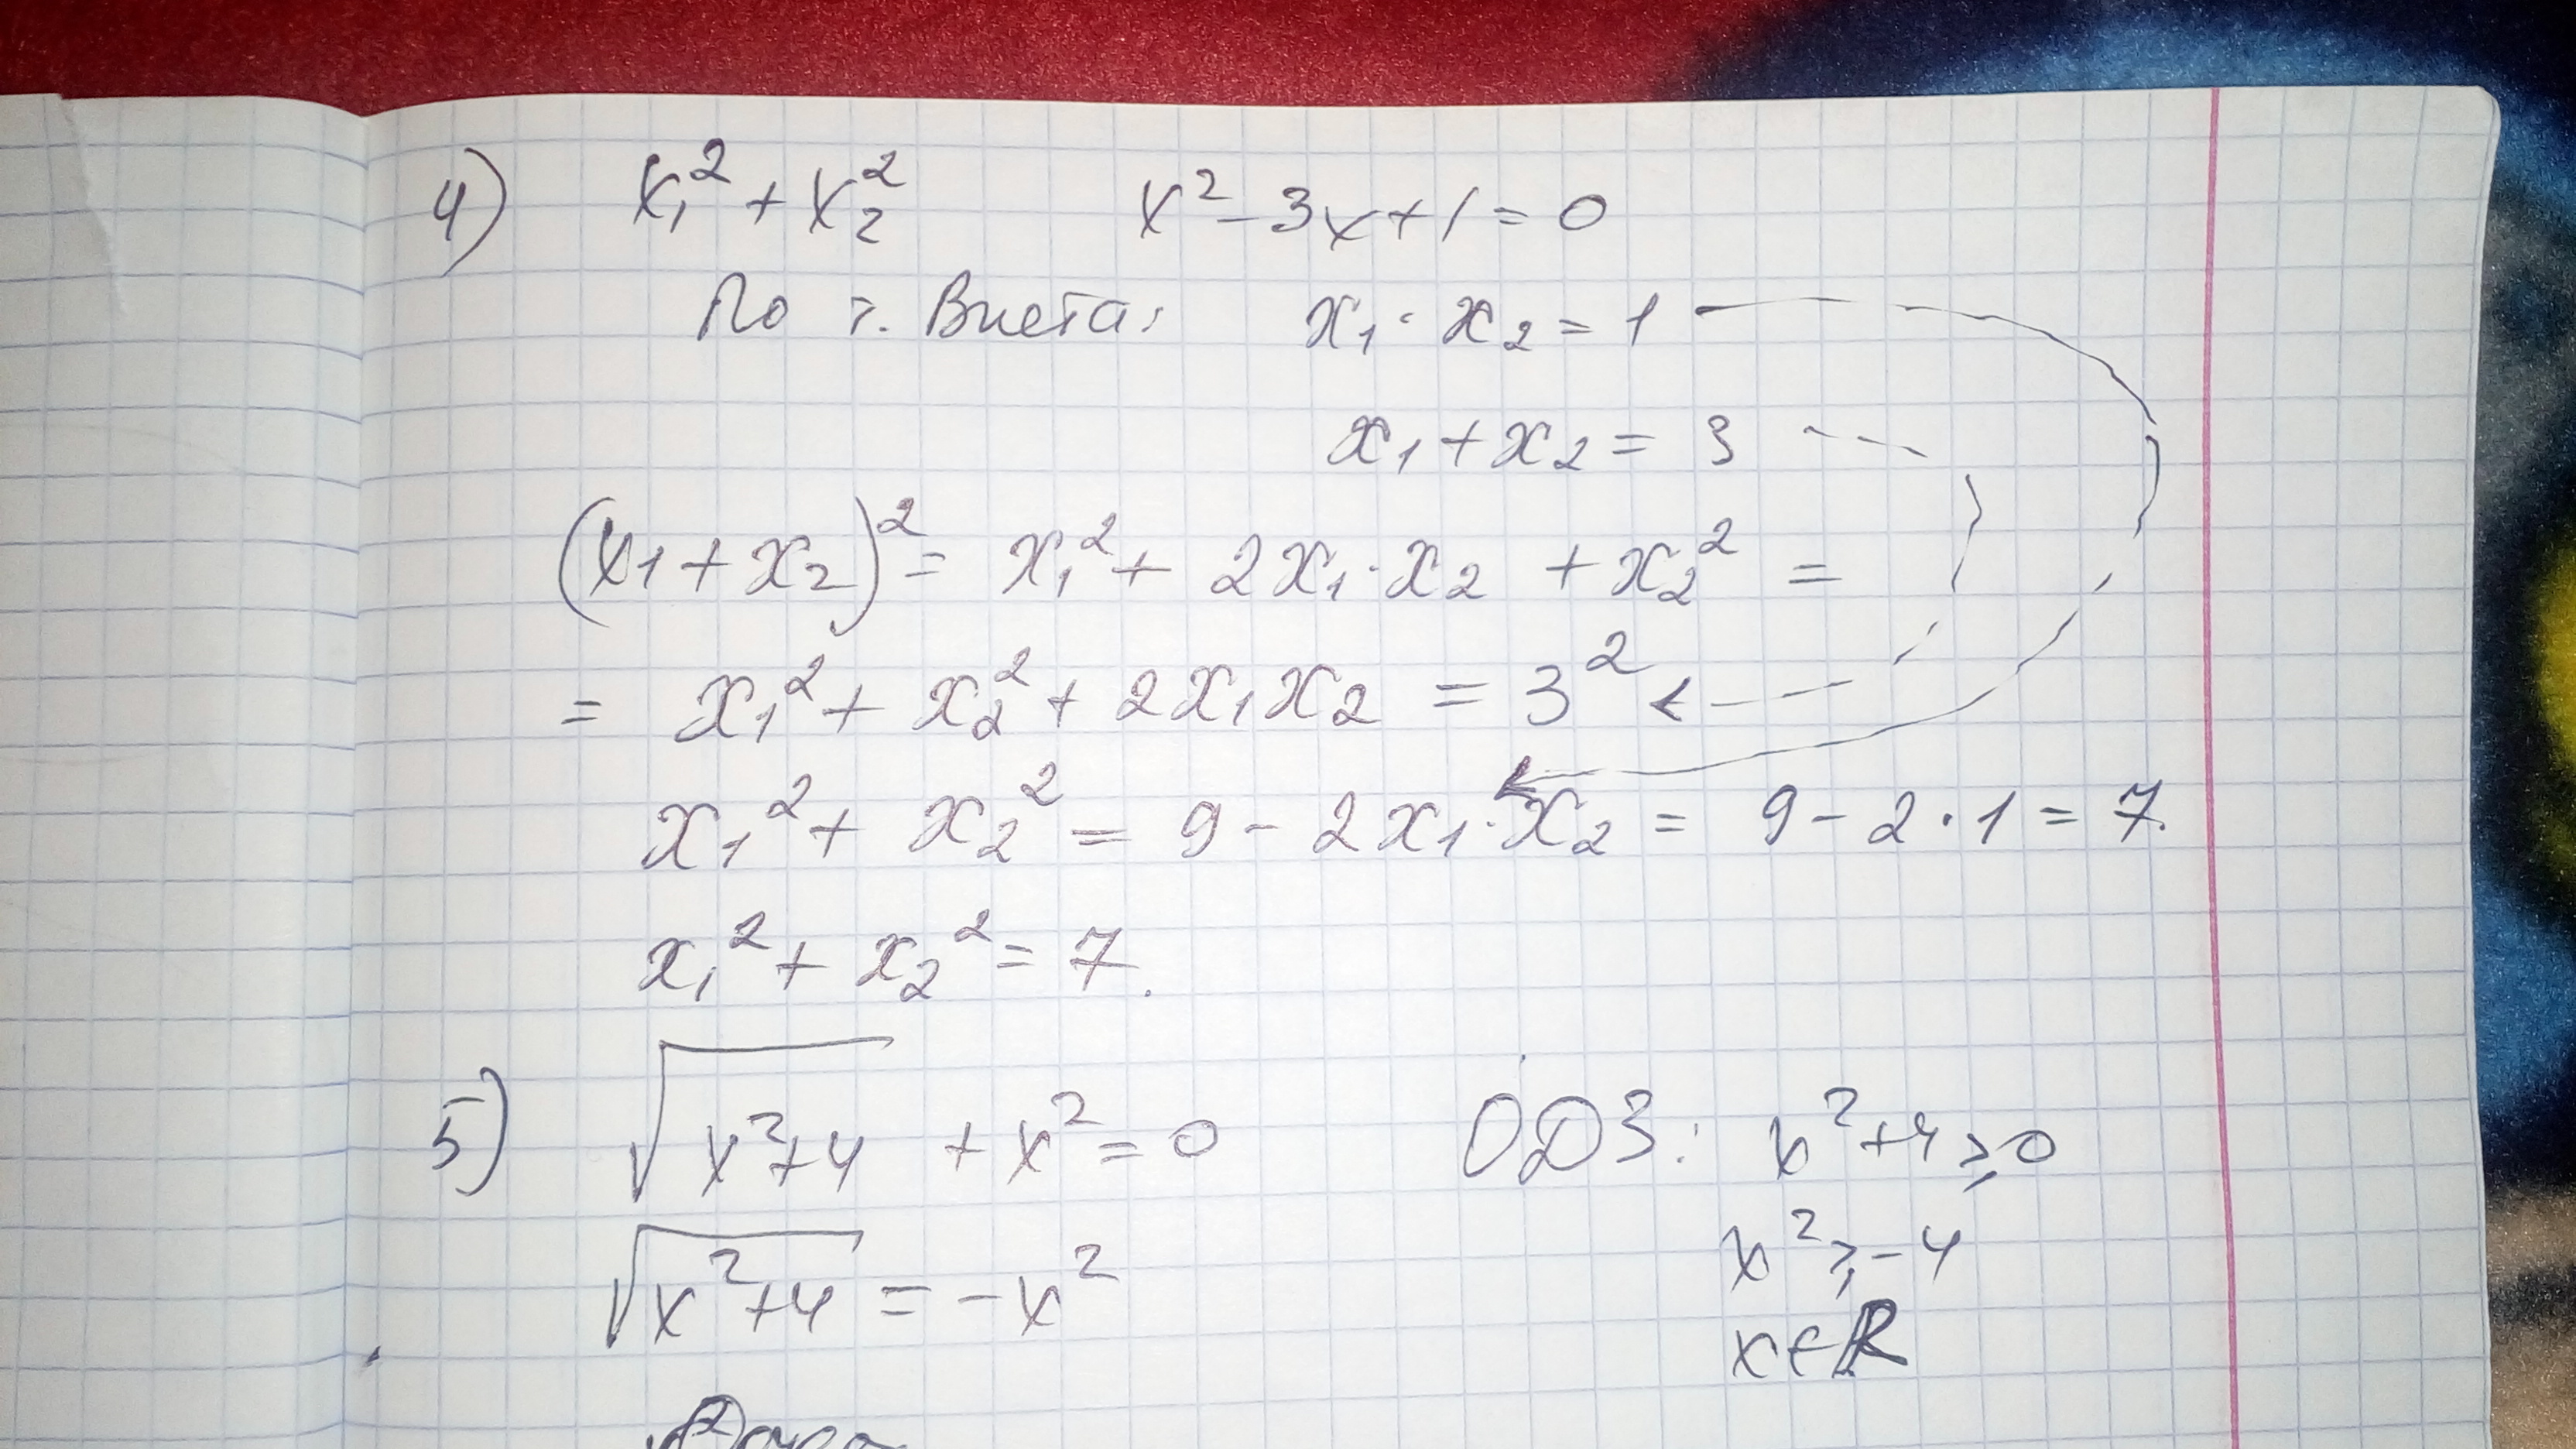 4) x₁² + x₂² x² - 3x + 1 = 0
По т. Виета: x₁ · x₂ = 1
x₁ + x₂ = 3
(x₁ + x₂)² = x₁² + 2x₁ · x₂ + x₂² =
= x₁² + x₂² + 2x₁x₂ = 3²
x₁² + x₂² = 9 - 2x₁ · x₂ = 9 - 2 · 1 = 7.
x₁² + x₂² = 7.
5) √(x²+4) + x² = 0 ОДЗ: x² + 4 ⩾ 0
√(x²+4) = -x² x² ⩾ -4
x ∈ ℝ